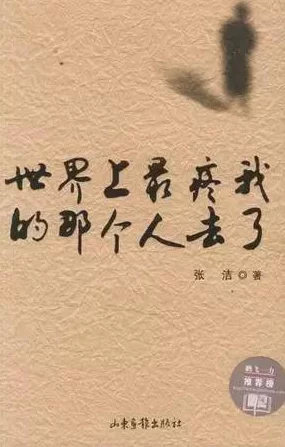 世界上最疼我
的那个人去了
张 洁◎著
推荐榜
山东画报出版社